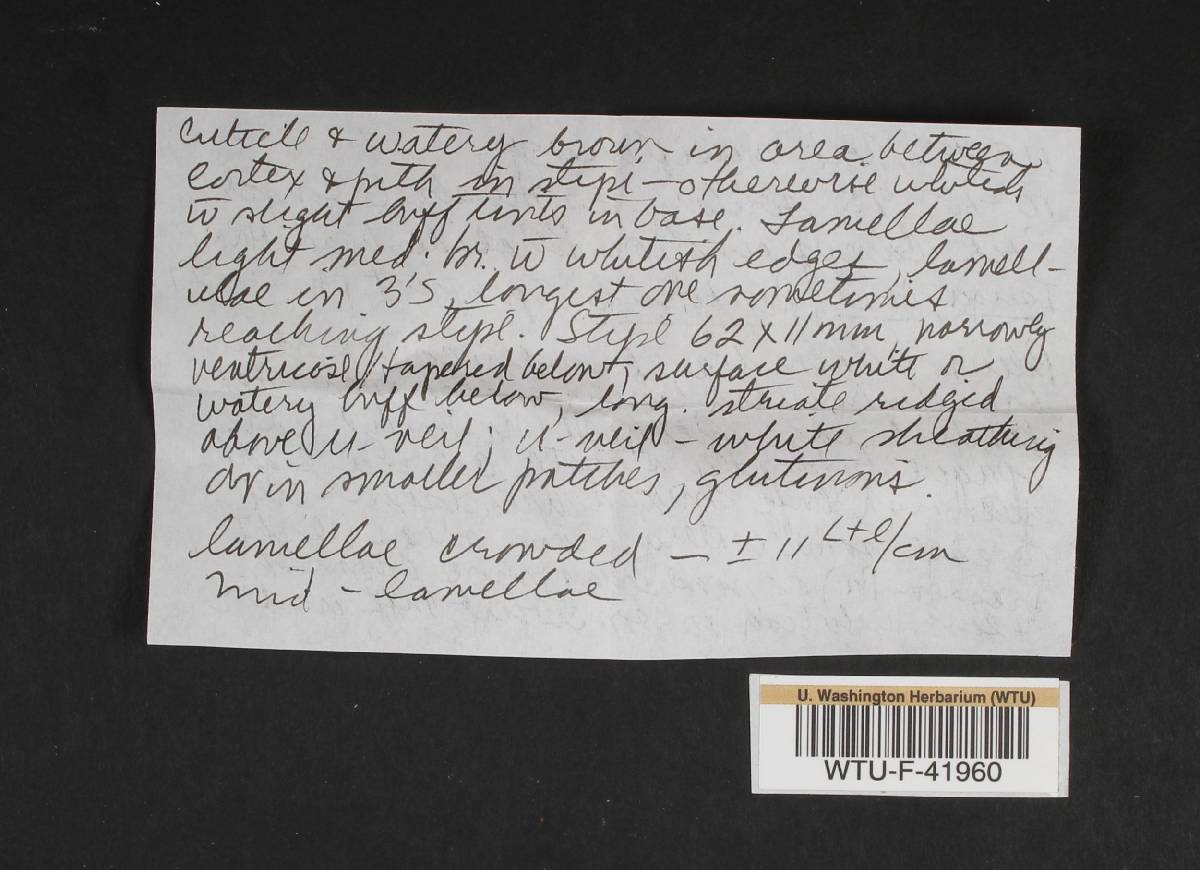 cuticle & watery brown in area between
cortex & pith in stipe – otherwise whitish
w slight buff tints in base. Lamellae
light med. br. w whitish edges, lamell-
ulae in 3's, longest one sometimes
reaching stipe. Stipe 62 x 11 mm, narrowly
ventricose/tapered below, surface white or
watery buff below, long. striate ridged
above u-veil; u-veil – white sheathing
or in smaller patches, glutinous.
lamellae crowded – ± 11 L+l/cm
mid-lamellae
U. Washington Herbarium (WTU)
WTU-F-41960